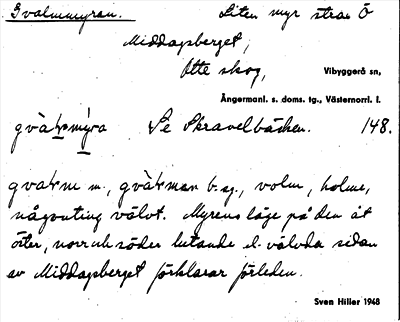 Gvalmmyran. Liten myr strax Ö
Middagsberget,
Ytte skog, Vibyggerå sn,
Ångermanl. s. doms. tg., Västernorrl. l.
Se Skravelbäcken. 148.
m., b. sg., volm, holme,
någonting välvt. Myrens läge på den åt
öster, norr och söder lutande el. välvda sidan
av Middagsberget förklarar förleden.
Sven Hiller 1948